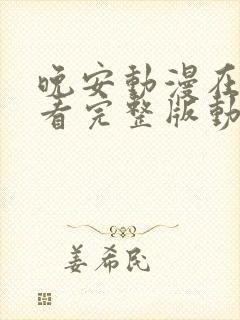 晚安動漫在
看完整版動
姜希民